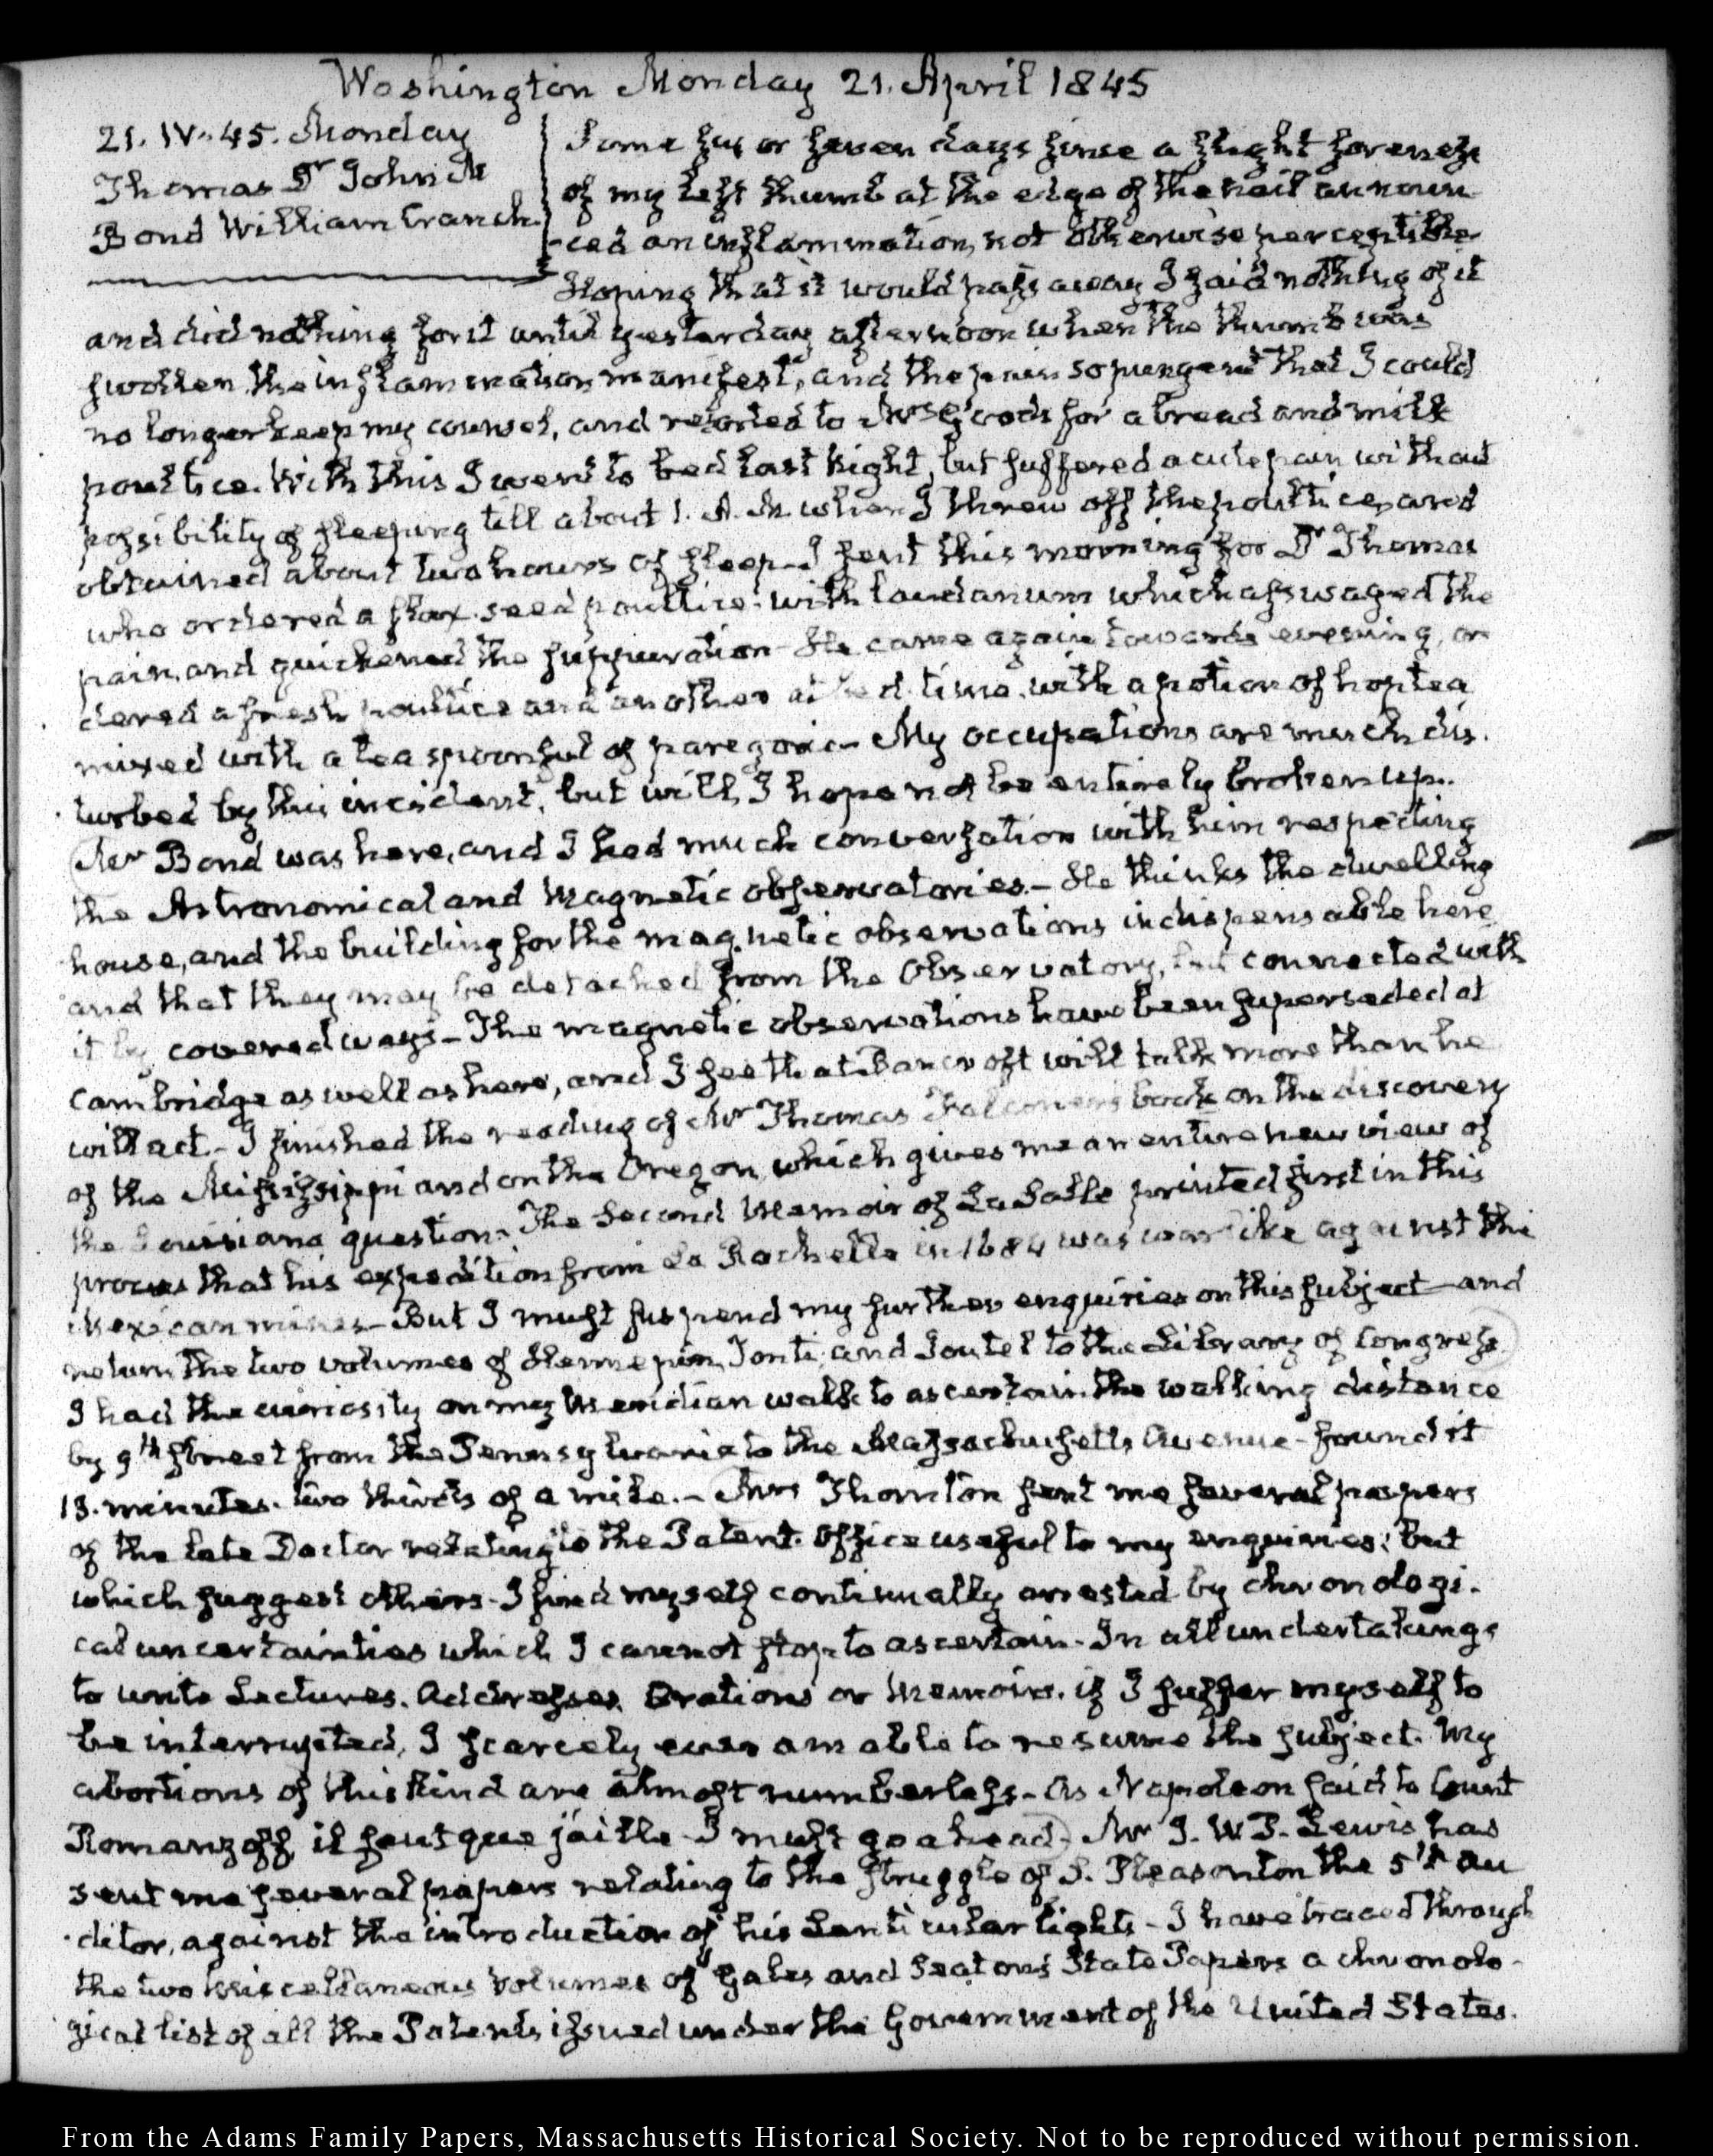 Washington Monday 21. April 1845
21. IV. 45. Monday
Thomas Dr John M
Bond William Cranch.
Some six or seven days since a slight soreness
of my left thumb at the edge of the nail announ-
-ced an inflammation, not otherwise perceptible
Hoping that it would pass away I said nothing of it
and did nothing for it until yesterday afternoon when the thumb was
swollen the inflammation manifest, and the pain so pungent that I could
no longer keep my counsel, and resorted to for a bread and milk
poultice. With this I went to bed last Night, but suffered acute pain without
possibility of sleeping till about 1. A.M. when I threw off the poultice, and
obtained about two hours of sleep. I sent this morning for Dr Thomas
who ordered a flax-seed poultice with laudanum which assuaged the
pain, and quickened the suppuration. He came again towards evening, or
dered a fresh poultice and another at bed-time, with a potion of hop tea
mixed with a teaspoonful of paregoric. My occupations are much dis-
turbed by this incident, but will, I hope not be entirely broken up.
Mr Bond was here, and I had much conversation with him respecting
the Astronomical and Magnetic observatories.— He thinks the dwelling
house, and the building for the magnetic observations indispensable here
and that they may be detached from the Observatory, but connected with
it by covered ways— The magnetic observations have been superseded at
Cambridge as well as here, and I see that Bancroft will talk more than he
will act.— I finished the reading of Mr Thomas Falconer's book on the discovery
of the Mississippi and on the Oregon, which gives me an entire new view of
the Louisiana question. The Second Memoir of La Salle printed first in this
proves that his expedition from La Rochelle in 1684 was warlike against the
Mexican mines— But I must suspend my further enquiries on this subject— and
return the two volumes of Hennepin, Tonti, and Joutel to the Library of Congress.
I had the curiosity on my Meridian walk to ascertain the walking distance
by 9th street from the Pennsylvania to the Massachusetts Avenue— found it
13. minutes. two thirds of a mile.— Mrs Thornton sent me several papers
of the late Doctor relating to the Patent Office useful to my enquiries; but
which suggest others. I find myself continually arrested by chronologi-
cal uncertainties which I cannot stop to ascertain. In all undertakings
to write Lectures, Addresses, Orations or Memoirs, if I suffer myself to
be interrupted, I scarcely ever am able to resume the subject. My
abortions of this kind are almost numberless— As Napoleon said to Count
Romanzoff, il faut que j'aille. I must go ahead. Mr I. W. P. Lewis has
sent me several papers relating to the struggle of S. Pleasonton the 5th Au
ditor, against the introduction of his Lenticular lights— I have traced through
the two Miscellaneous Volumes of Gales and Seaton's State Papers a chronolo-
gical list of all the Patents issued under the Government of the United States.
From the Adams Family Papers, Massachusetts Historical Society. Not to be reproduced without permission.